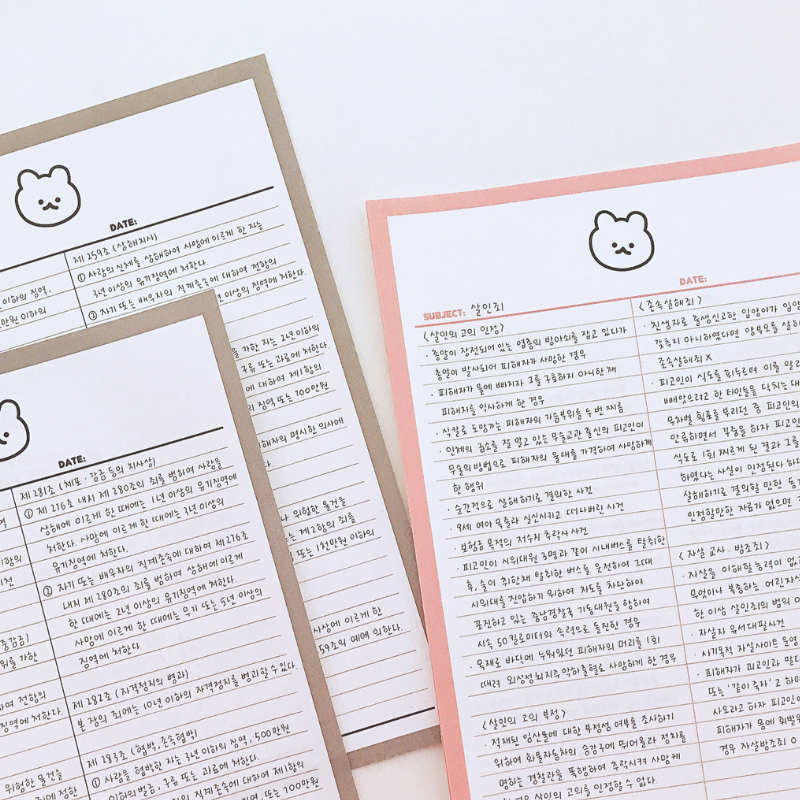 DATE:
이하의 징역,
만원 이하의
제 259조 (상해치사)
① 사람의 신체를 상해하여 사망에 이르게 한 자는
3년 이상의 유기징역에 처한다.
② 자기 또는 배우자의 직계존속에 대하여 전항의
이상의 징역에 처한다.
을 가한 자는 2년 이하의
구류 또는 과료에 처한다.
에 대하여 제1항의
의 징역 또는 700만원
해자의 명시한 의사에
나 위험한 물건을
는 제2항의 죄를
또는 1천만원 이하의
사상에 이르게 한
59조의 예에 의한다.
DATE:
제 281조 (체포·감금 등의 치사상)
① 제 276조 내지 제 280조의 죄를 범하여 사람을
상해에 이르게 한 때에는 1년 이상의 유기징역에
처한다. 사망에 이르게 한 때에는 3년 이상의
유기징역에 처한다.
② 자기 또는 배우자의 직계존속에 대하여 제276조
내지 제 280조의 죄를 범하여 상해에 이르게
한 때에는 2년 이상의 유기징역에 처한다.
사망에 이르게 한 때에는 무기 또는 5년 이상의
징역에 처한다.
중감금)
위를 가한
전항의
징역에 처한다.
제 282조 (자격정지의 병과)
본 장의 죄에는 10년 이하의 자격정지를 병과할 수 있다.
제 283조 (협박, 존속협박)
① 사람을 협박한 자는 3년 이하의 징역, 500만원
이하의 벌금, 구류 또는 과료에 처한다.
위험한 물건을
직계존속에 대하여 제1항의
징역 또는 700만원
DATE:
SUBJECT: 살인죄
<살인의 고의 인정>
· 총알이 장전되어 있는 엽총의 방아쇠를 잡고 있다가
총알이 발사되어 피해자가 사망한 경우
· 피해자가 물에 빠지자 그를 구호하지 아니한 채
피해자를 익사하게 한 경우
· 식칼로 도망가는 피해자의 가슴부위를 두 번 찌름
· 인체의 급소를 잘 알고 있는 무술교관 출신의 피고인이
무술의 방법으로 피해자의 울대를 가격하여 사망하게
한 행위
· 순간적으로 살해하기로 결의한 사건
· 9세 여아 목졸라 실신시키고 떠나버린 사건
· 보험금 목적의 저수지 추락사 사건
· 피고인이 시위대원 3명과 같이 시내버스를 탈취한
후, 술이 취한채 탈취한 버스를 운전하여 그대로
시위대를 진압하기 위하여 차도를 차단하여
포진하고 있는 충남경찰국 기동대원을 향하여
시속 50킬로미터의 속력으로 돌진한 경우
· 목재로 바닥에 누워있던 피해자의 머리를 1회
때려 외상성뇌지주막하출혈로 사망하게 한 경우
<살인의 고의 부정>
· 적재된 임산물에 대한 부정성 여부를 조사하기
위하여 화물자동차의 승강구에 뛰어올라 정차를
명하는 경찰관을 폭행하여 추락시켜 사망케
경우 살인의 고의를 인정할 수 없다.
<존속살해죄>
· 친생자로 출생신고한 입양아가 입양
갖추지 아니하였다면 양부모를 살해
존속살해죄 X
· 피고인이 식도를 휘두르며 이를 말리
빼앗으려고 한 타인들을 닥치는 대
무차별 횡포를 부리던 중 피고인의
만류하면서 꾸중을 하자 피고인
식도로 1회 찌르게 된 결과 그를
하였다는 사실이 인정된다 하더
살해하기로 결의할 만한 동기
인정할만한 자료가 없으면
<자살교사·방조죄>
· 자살을 이해할 능력이 없
무엇이나 복종하는 어린자식
한 이상 살인죄의 범의
· 자살자 유서대필사건
· 사기목적 자살사이트 운영
· 피해자가 피고인과 말다
또는 '같이 죽자' 고 하며
사오라고 하자 피고인이
피해자가 몸에 휘발유
경우 자살방조죄